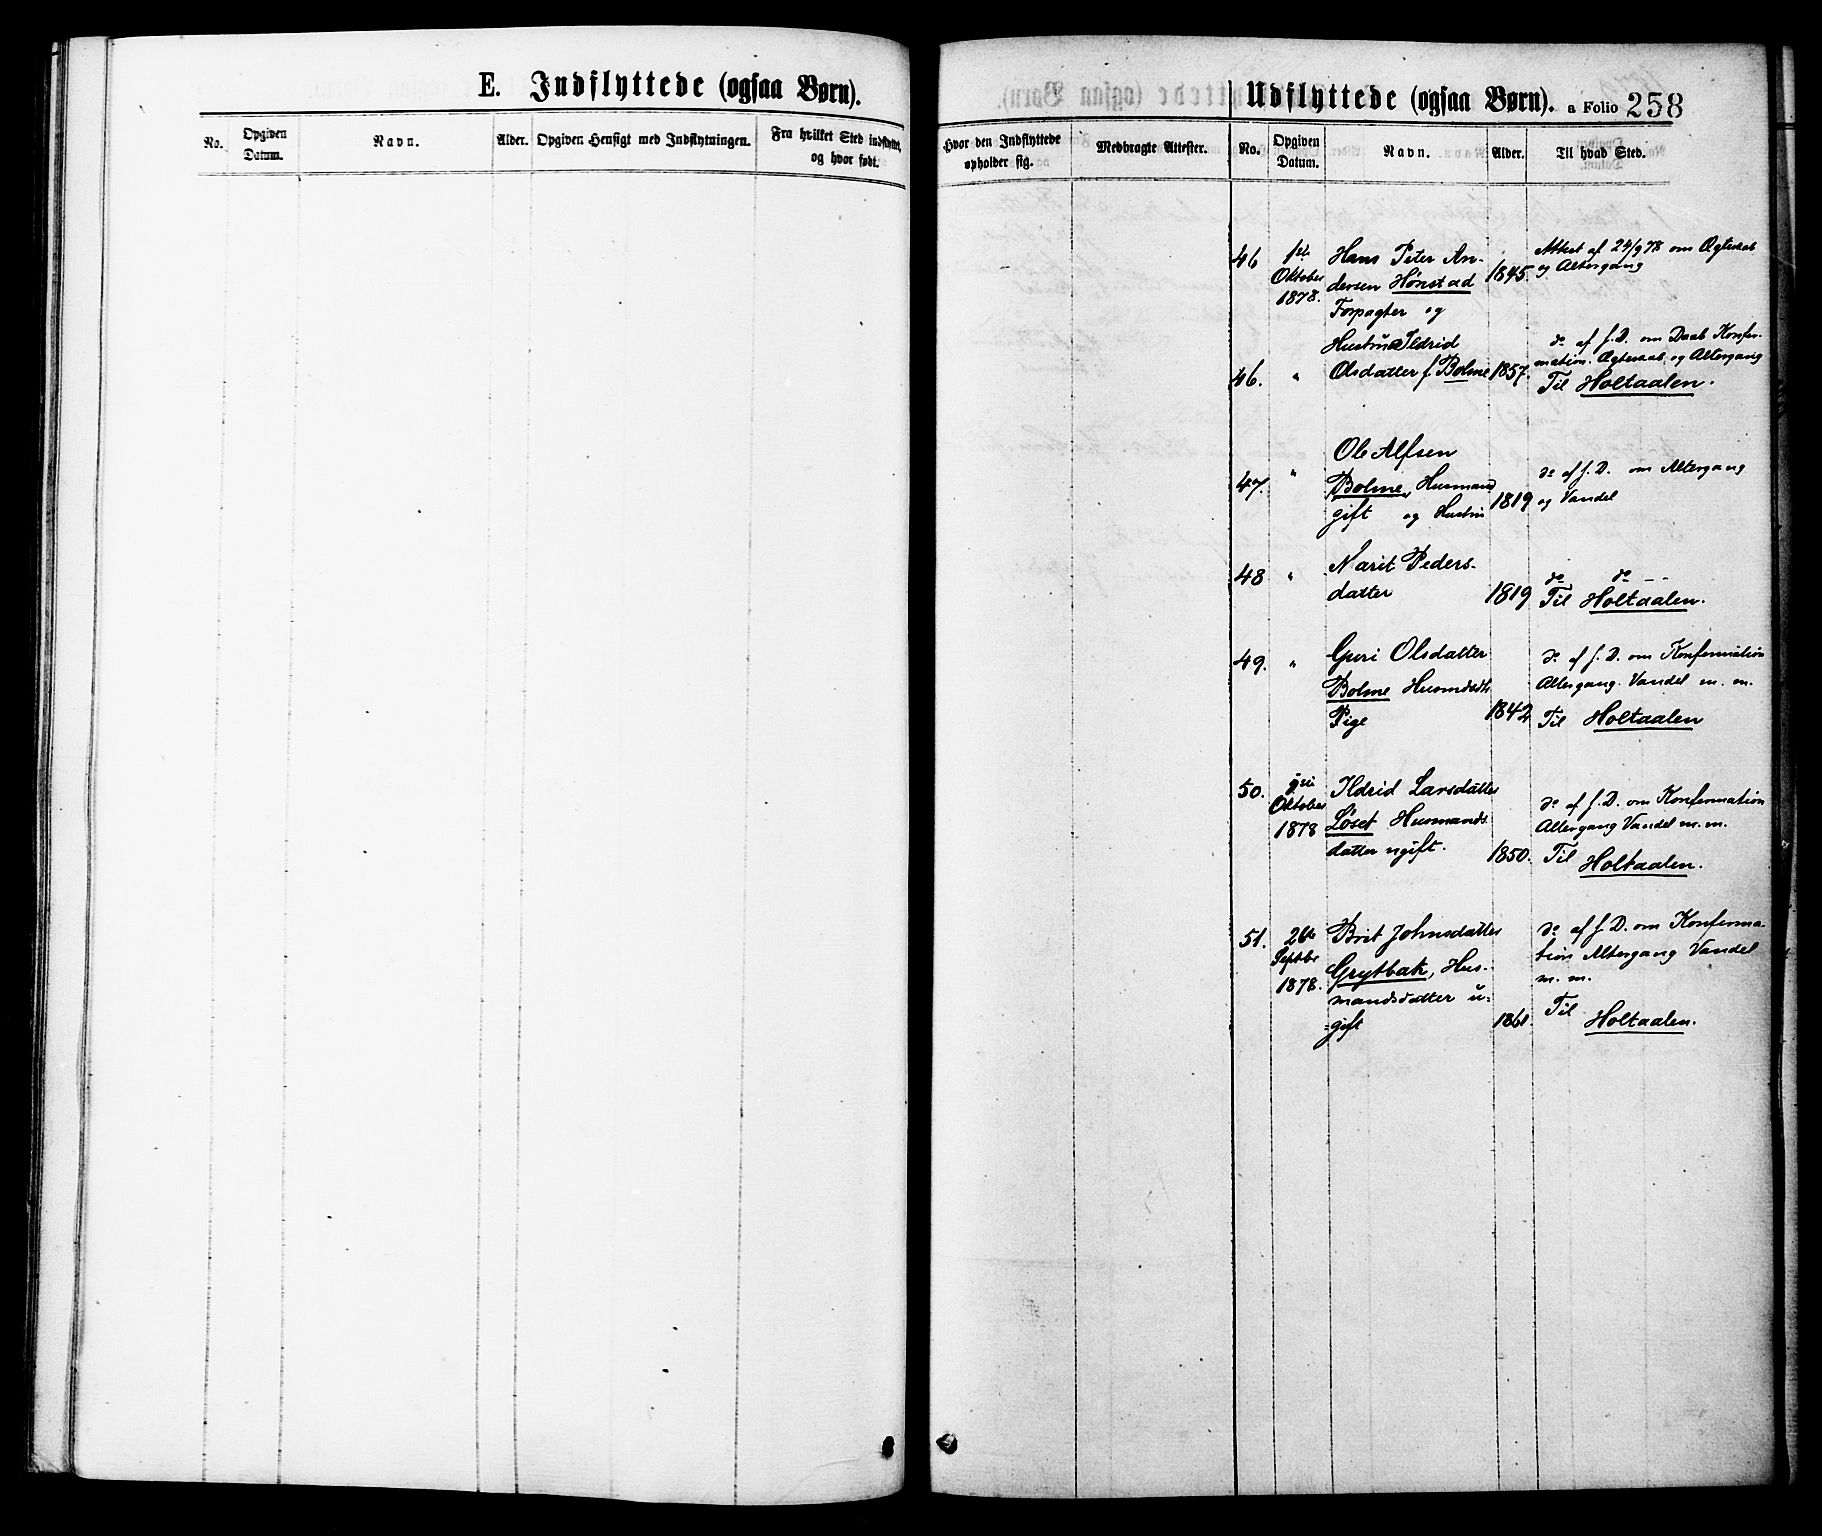 E. Indflyttede (ogsaa Børn).
No.
Opgiven
Datum.
Navn.
Alder.
Opgiven Hensigt med Indflytningen.
Fra hvilket Sted indflyttet,
og hvor født.
Udflyttede (ogsaa Børn). a Folio 258
Hvor den Indflyttede
opholder sig.
Medbragte Attester.
No.
Opgiven
Datum.
Navn.
Alder.
Til hvad Sted.
46 1ste Hans Peter An- Attest af 24/9 78 om Ægteskab
Oktober dersen Hønstad 1845. og Altergang
1878. Forpagter og
Hustru Ildrid do af s. D. om Daab Konfir-
46. " Olsdatter f. Bolme 1857. mation. Ægteskab og Altergang
Til Holtaalen.
Ole Alfsen
47. " Bolme, Husmand do af s. D. om Altergang
gift og Hustru 1819 og Vandel
48 " Marit Peders- do do - -
datter 1819 Til Holtaalen.
49. " Guri Olsdatter do af s. D. om Konfirmation
Bolme Husmdsdtr Altergang. Vandel m. m.
Pige 1842 Til Holtaalen
50. Ildrid Larsdatter
Oktober Løset Husmands do af s. D. om Konfirmation
1878 datter ugift. Altergang Vandel m. m.
1850. Til Holtaalen.
51. 26de Brit Johnsdatter do af s. D. om Konfirma-
Septbr Grytbak, Hus- tion Altergang Vandel
1878. mandsdatter u- m. m.
=gift 1861. Til
Holtaalen.